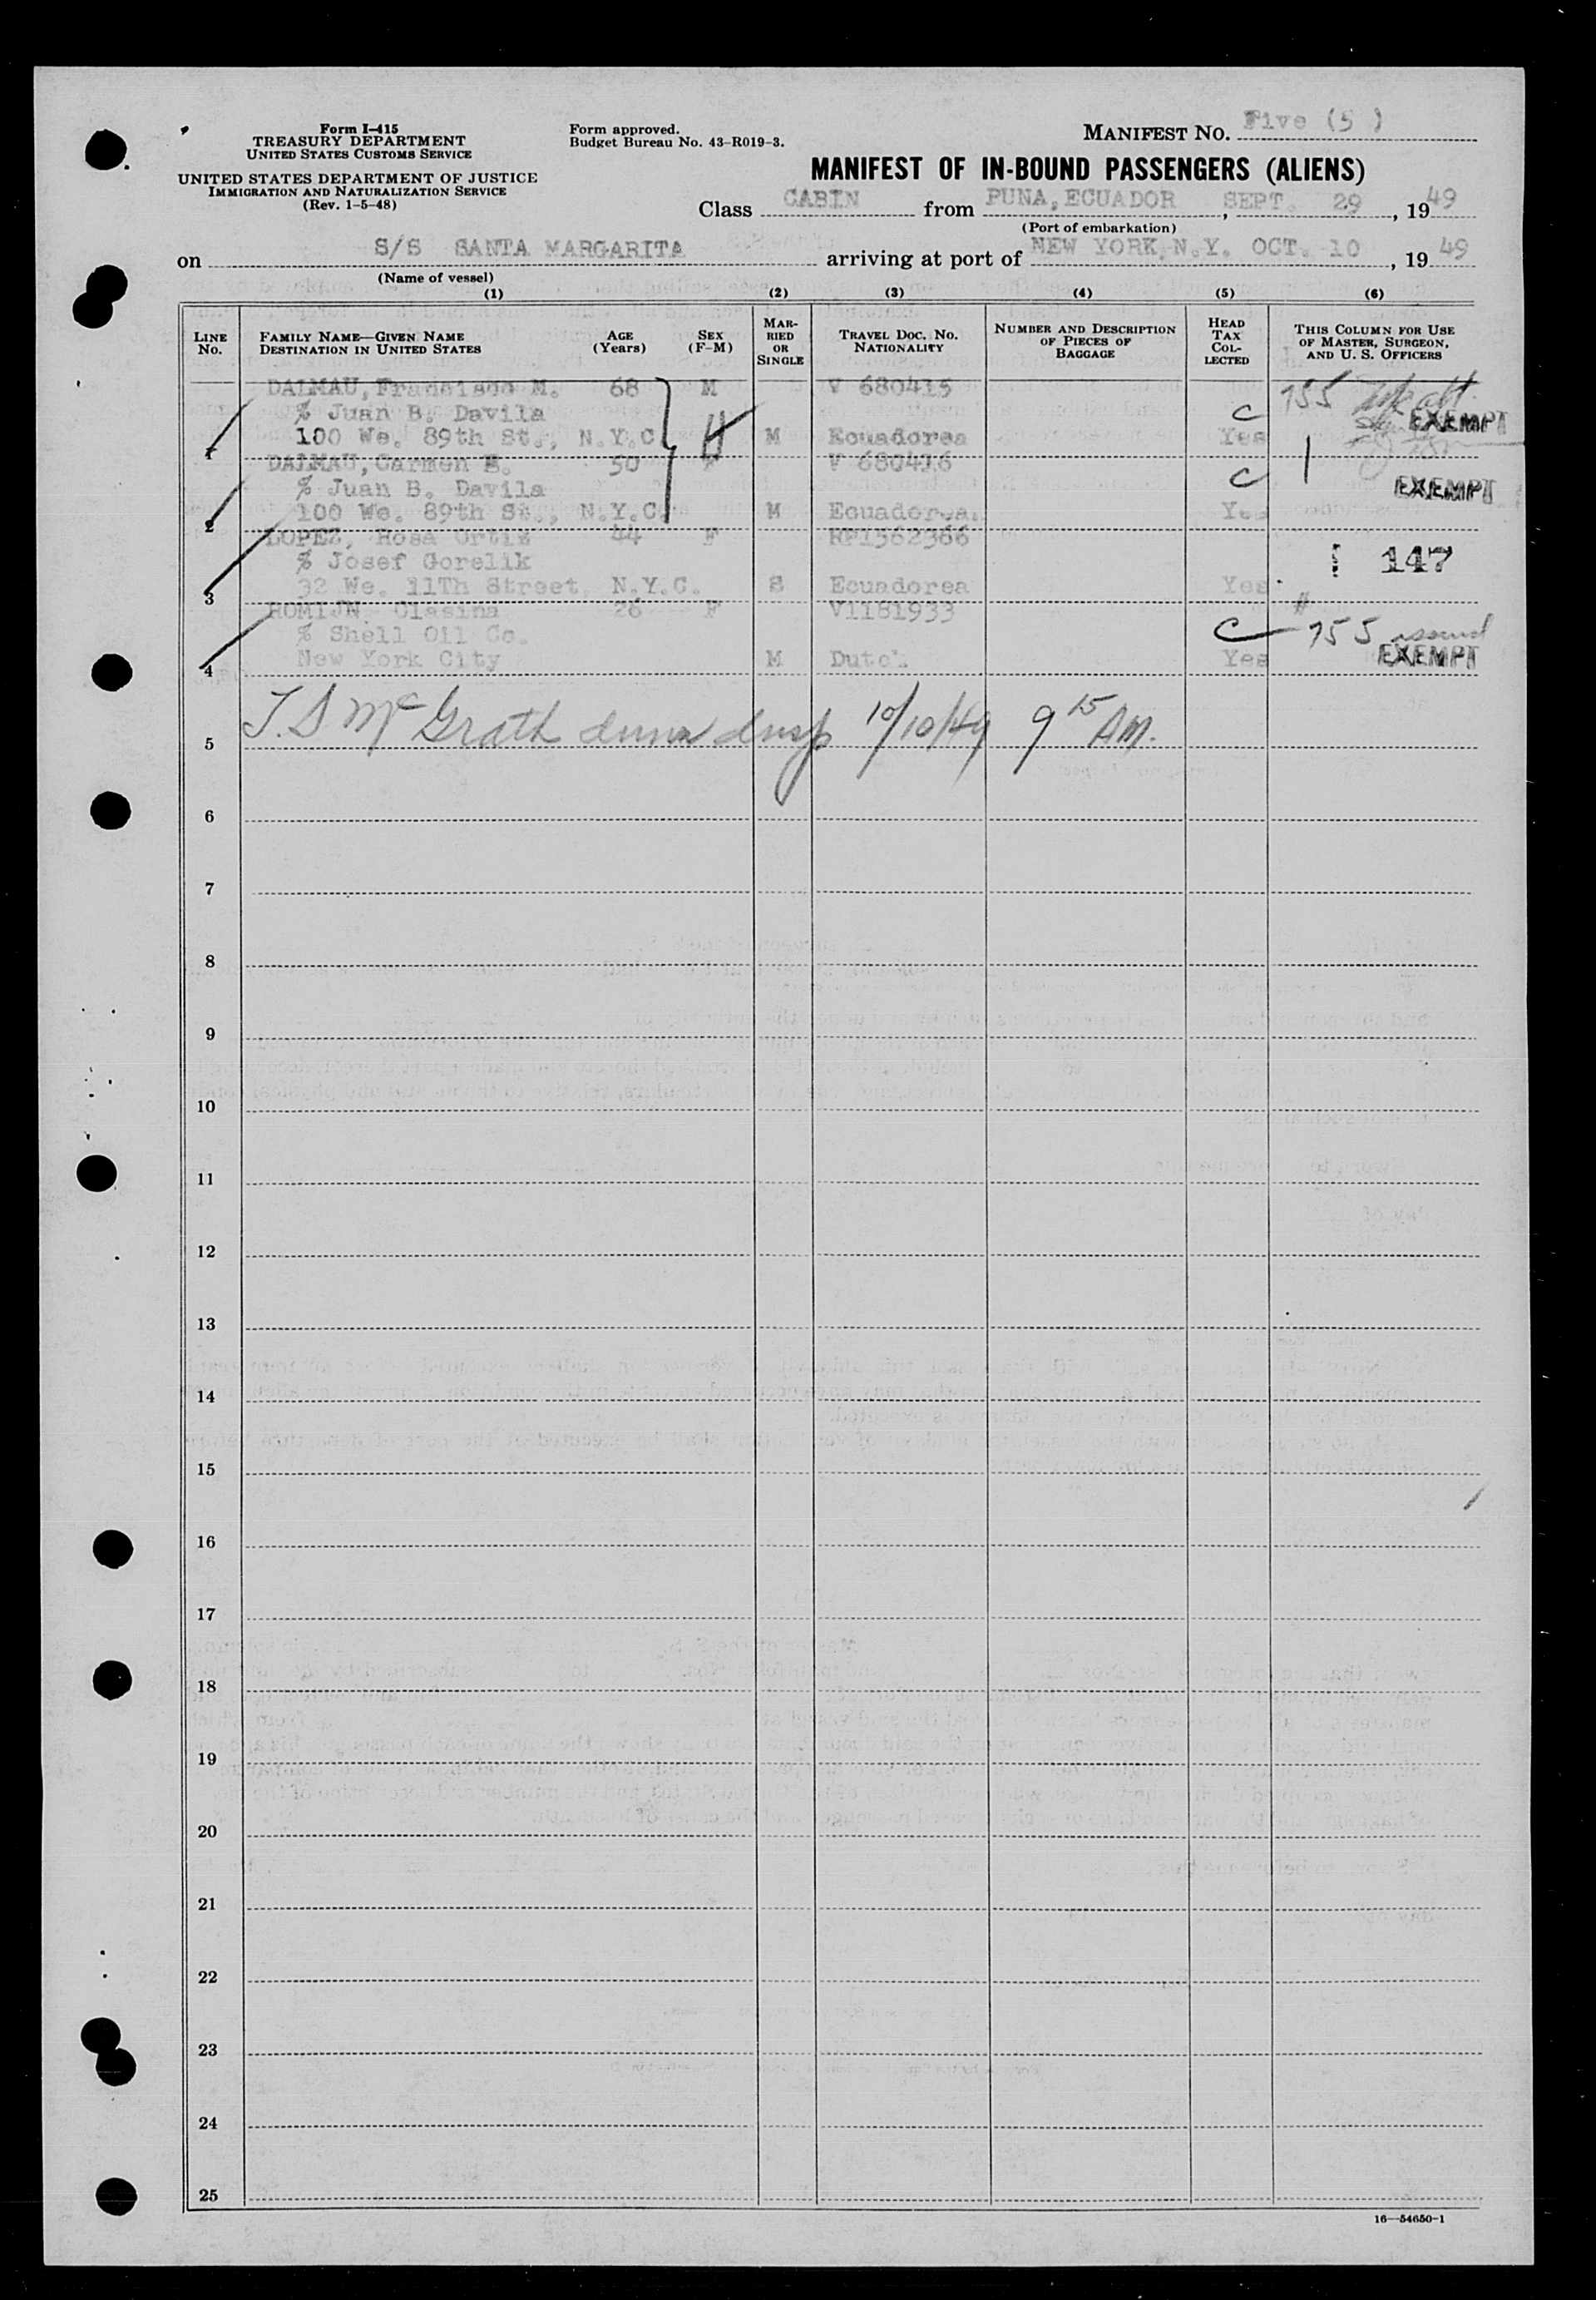 Form I-415
TREASURY DEPARTMENT
UNITED STATES CUSTOMS SERVICE
UNITED STATES DEPARTMENT OF JUSTICE
IMMIGRATION AND NATURALIZATION SERVICE
(Rev. 1-5-48)
Form approved.
Budget Bureau No. 43-R019-3.
MANIFEST NO. Five (5 )
MANIFEST OF IN-BOUND PASSENGERS (ALIENS)
Class CABIN from PUNA, ECUADOR , SEPT. 29 , 19 49
(Port of embarkation)
on S/S SANTA MARGARITA arriving at port of NEW YORK, N.Y. OCT. 10 , 19 49
(Name of vessel)
(1) (2) (3) (4) (5) (6)
LINE No. FAMILY NAME—GIVEN NAME DESTINATION IN UNITED STATES AGE (Years) SEX (F-M) MARRIED OR SINGLE TRAVEL DOC. NO. NATIONALITY NUMBER AND DESCRIPTION OF PIECES OF BAGGAGE HEAD TAX COLLECTED THIS COLUMN FOR USE OF MASTER, SURGEON, AND U. S. OFFICERS
DALMAU, Francisco M. 68 M V 680415 755
% Juan B. Davila C EXEMPT
1 100 We. 89th St., N.Y.C. M Ecuadorea Yes
DALMAU, Carmen E. 50 F V 680416
% Juan B. Davila C EXEMPT
2 100 We. 89th St., N.Y.C. M Ecuadorea. Yes
LOPEZ, Rosa Ortiz 44 F RP1562366
% Josef Gorelik 147
3 32 We. 11Th Street N.Y.C. S Ecuadorea Yes
ROMIJN. Clasina 26 F V1181933
% Shell Oil Co. C # 755 issued
4 New York City M Dutch Yes EXEMPT
5 T. S McGrath Insp 10/10/49 9 15 AM.
6
7
8
9
10
11
12
13
14
15
16
17
18
19
20
21
22
23
24
25
16—54650-1